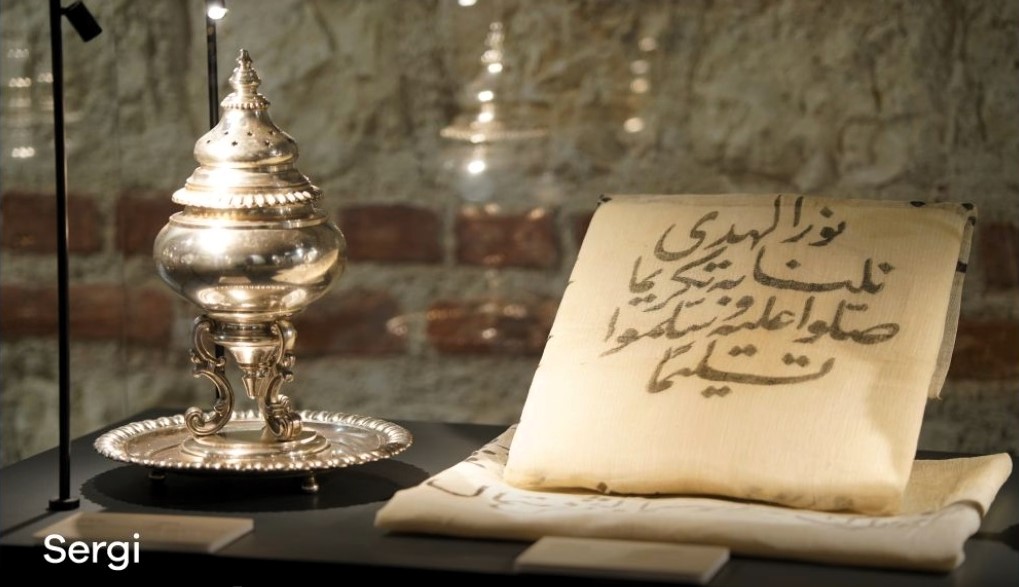 نور الهدى
نلنا به تكريما
صلوا عليه وسلموا
تسليما
Sergi